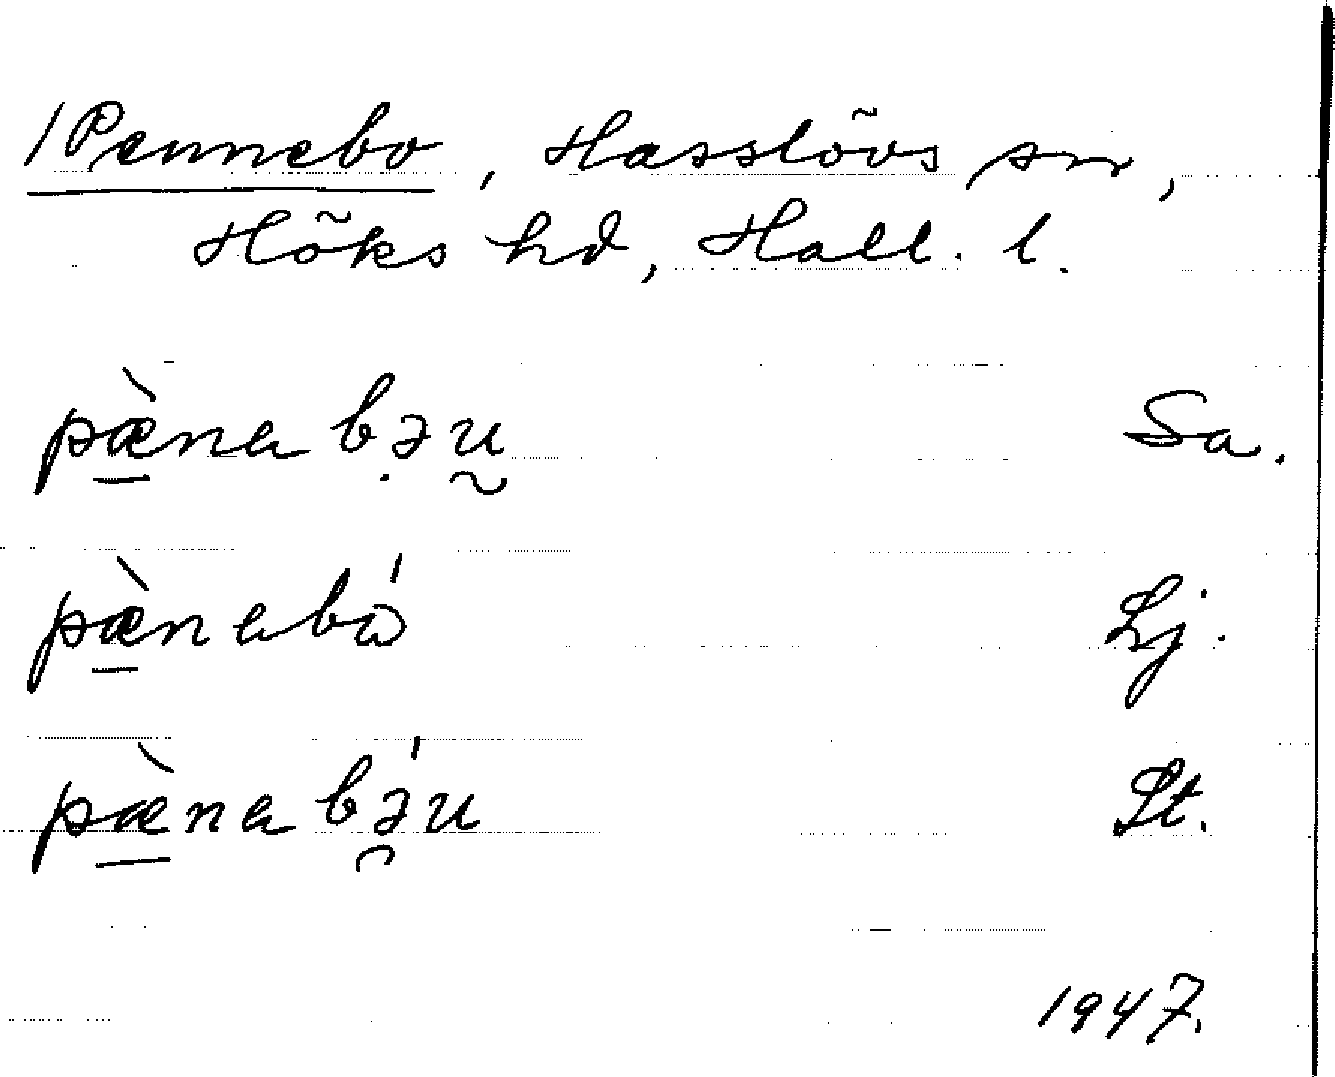 /Pennebo, Hasslövs sn,
Höks hd, Hall. l.
pæ̀nabəu Sa.
pæ̀nabǻ Lj.
pæ̀nabə́u St.
1947.